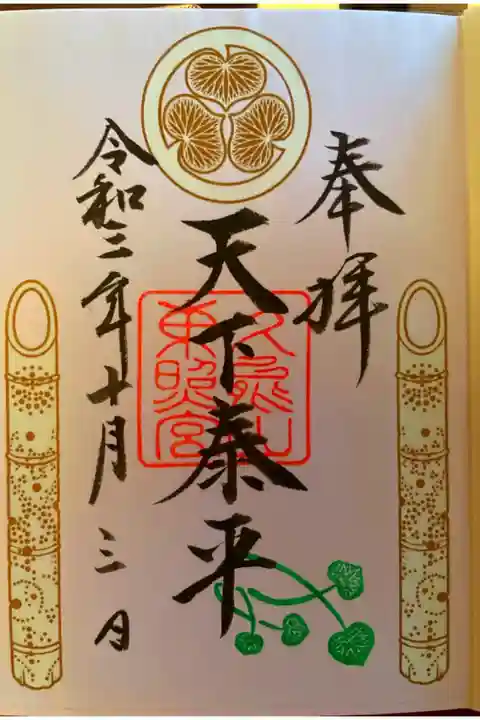 奉拝
天下泰平
久能山
東照宮
令和三年十月三日